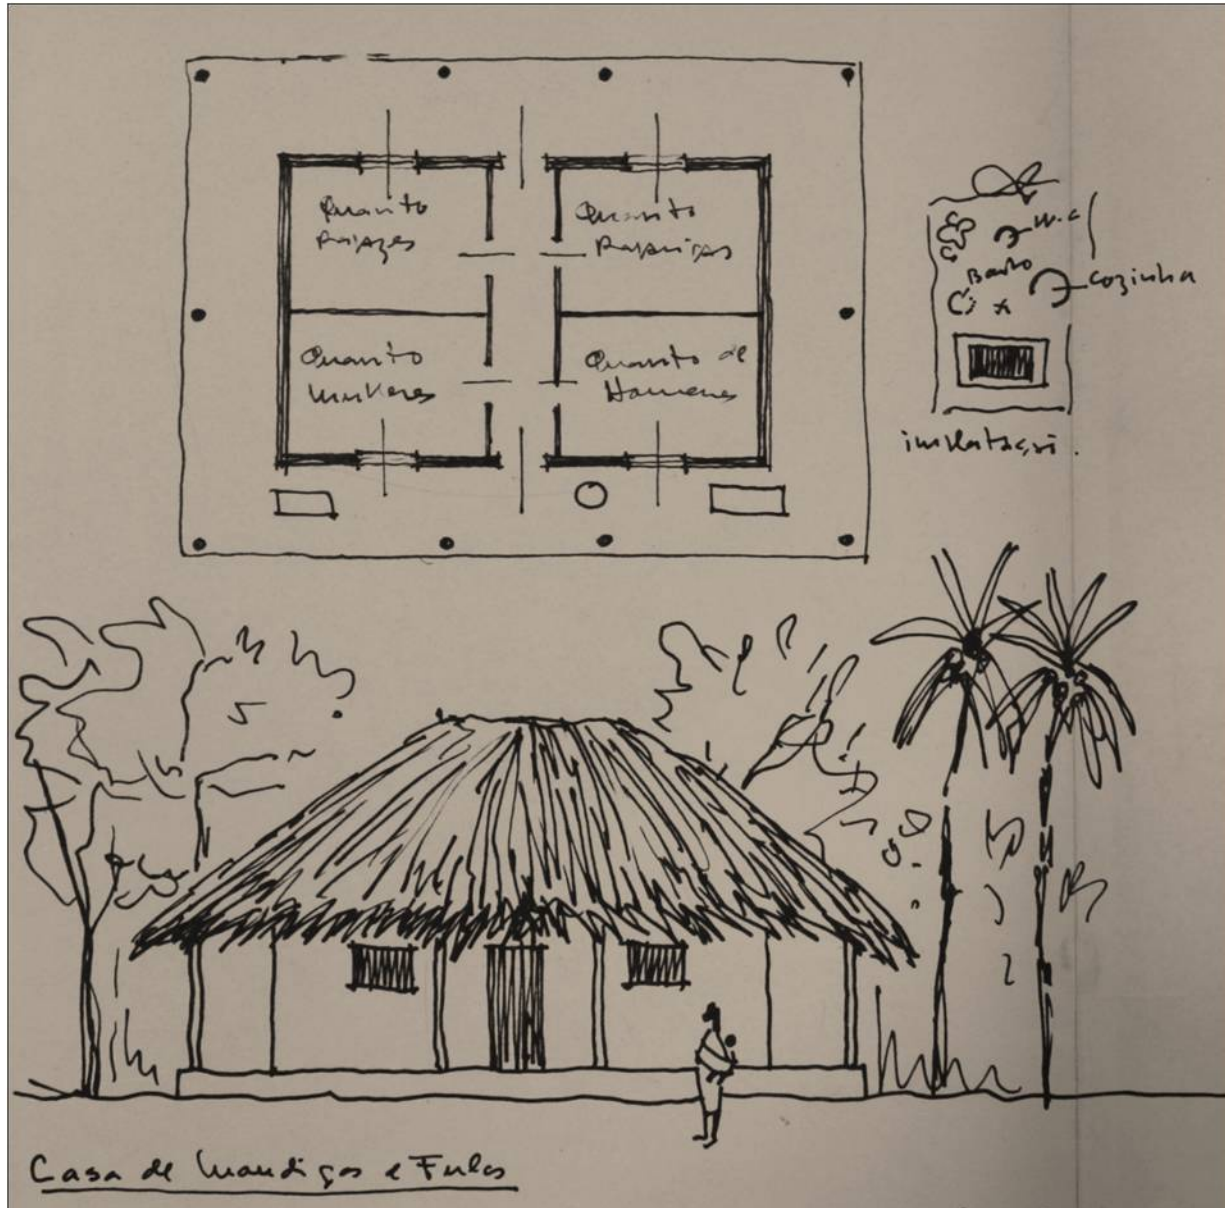 Quarto
Rapazes
Quarto
Raparigas
Quarto
Mulheres
Quarto de
Homens
W.C
Banho
Cozinha
implantação.
Casa de Mandigas e Fulas